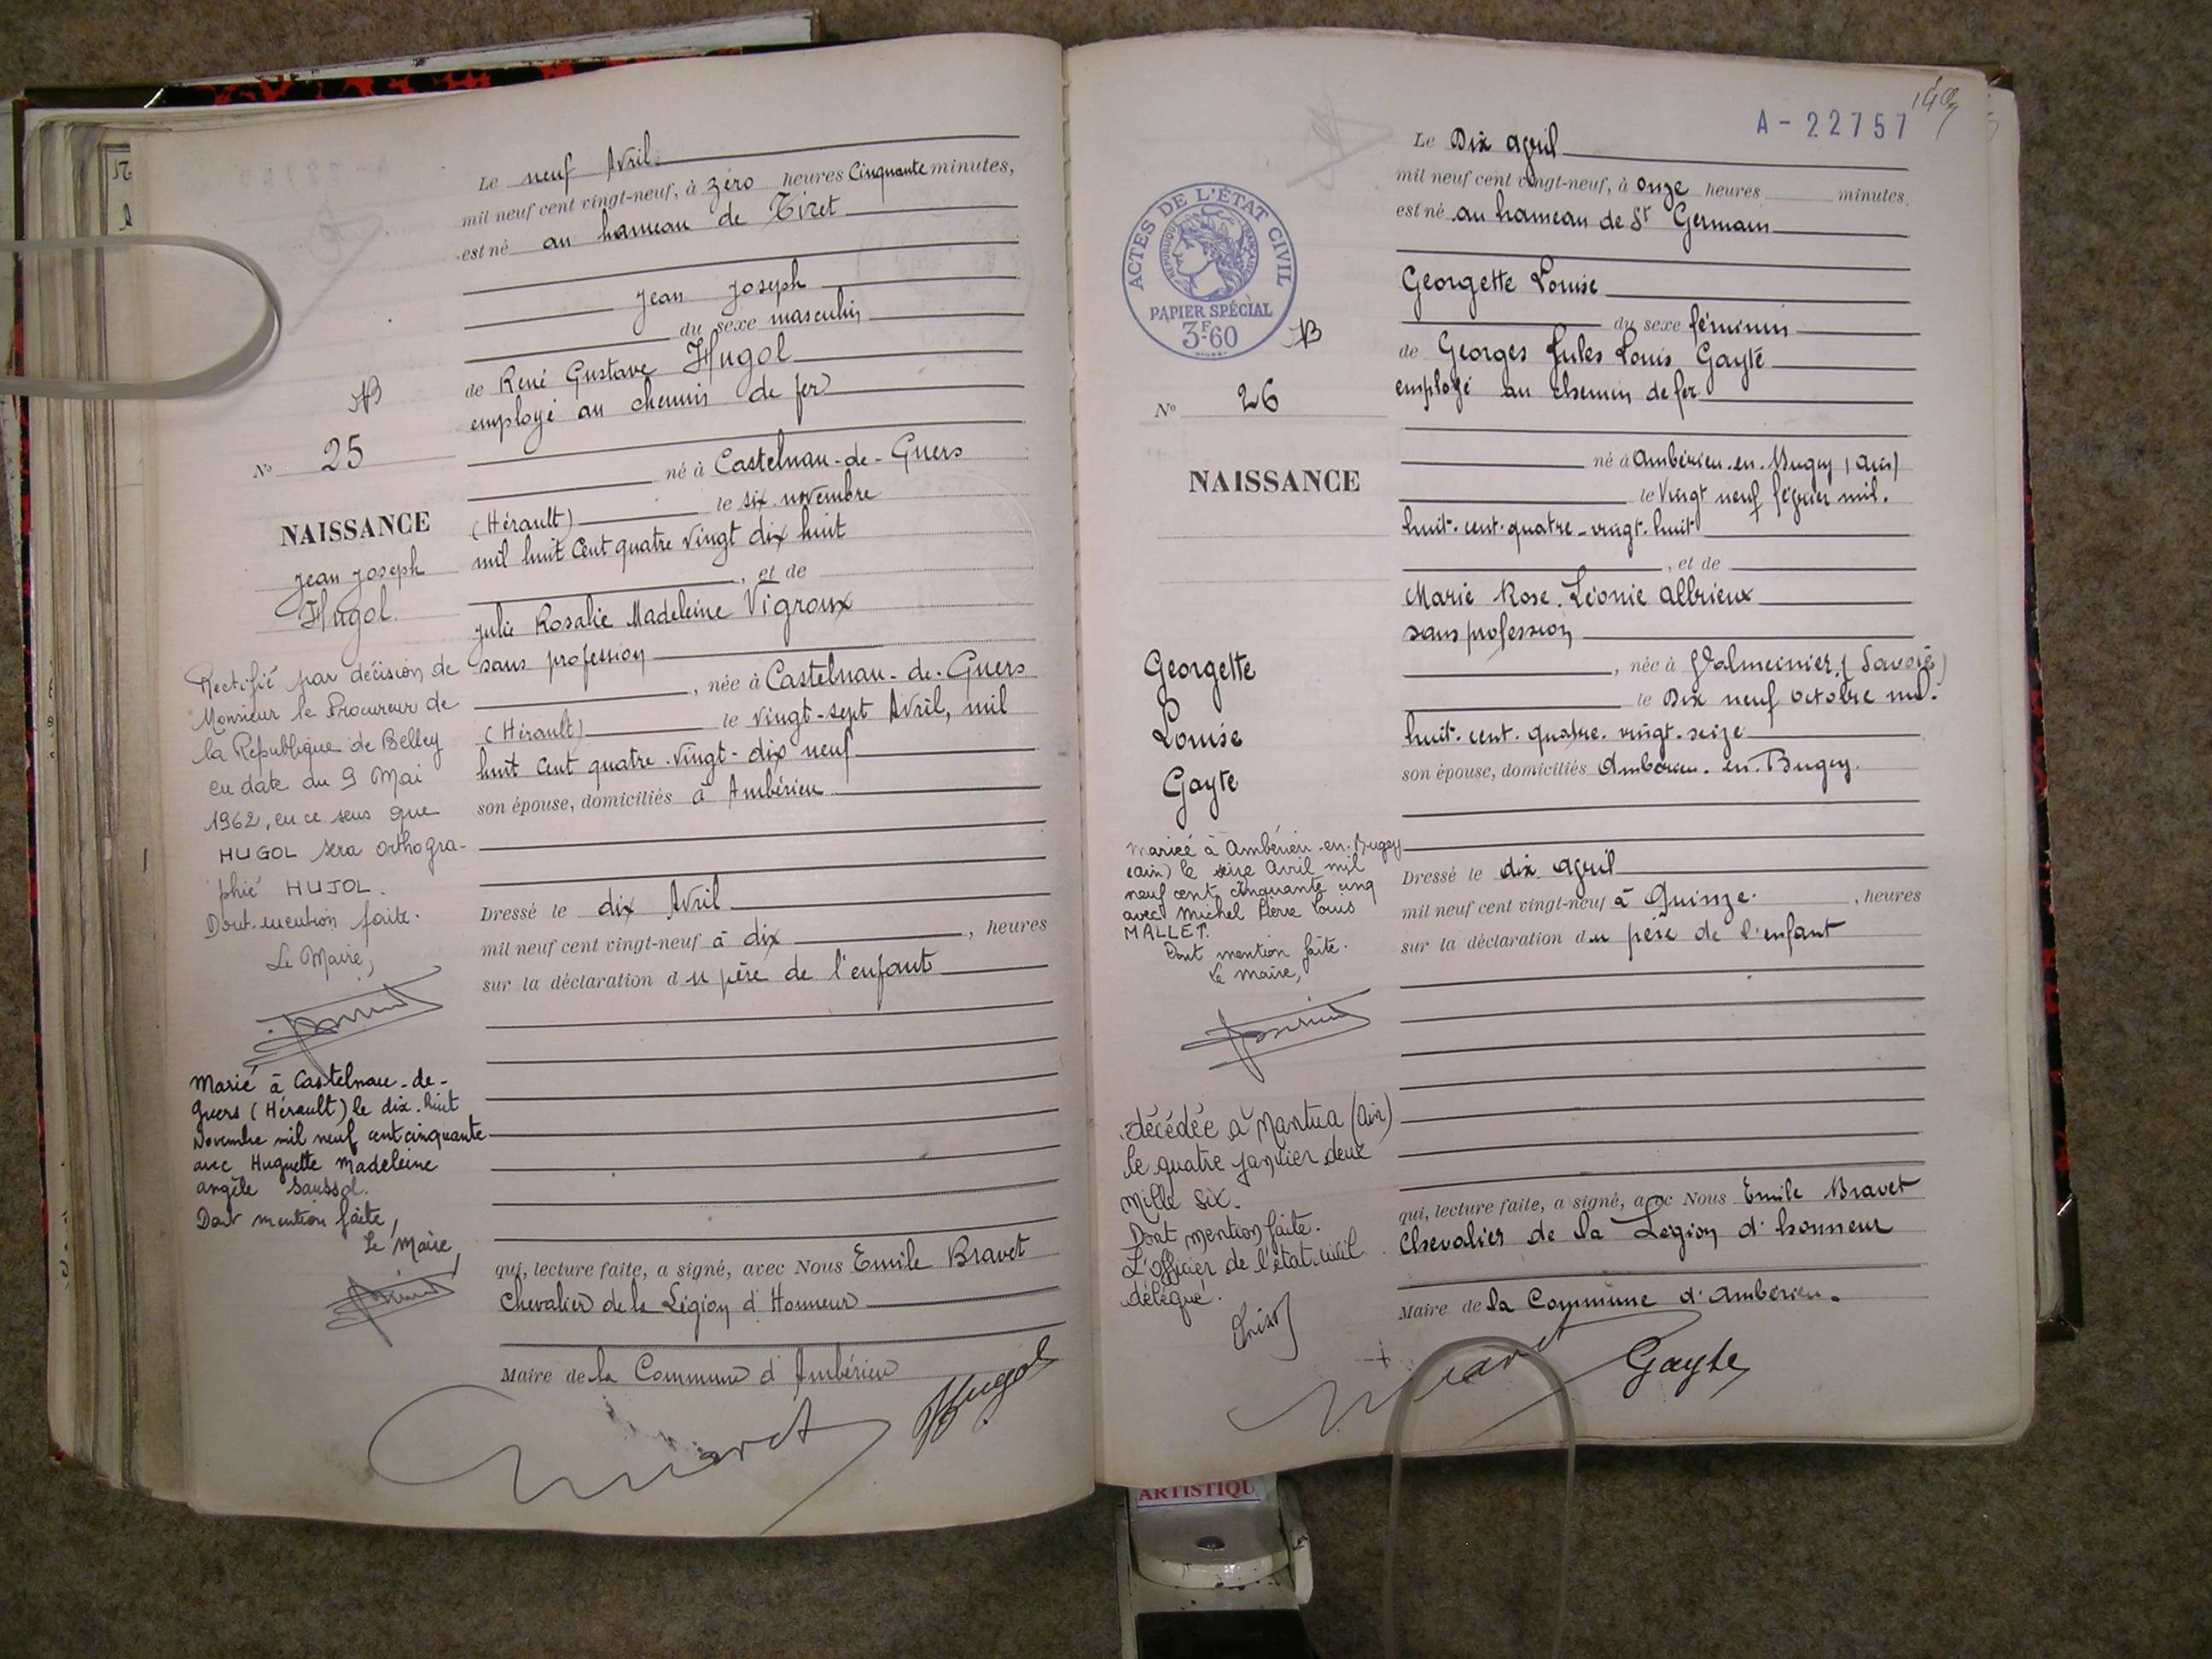 Le neuf Avril
mil neuf cent vingt-neuf, à zéro heures Cinquante minutes,
est né au hameau de Tiret
Jean Joseph
du sexe masculin
de René Gustave Hugol
employé au chemin de fer
né à Castelnau-de-Guers
(Hérault) le six novembre
mil huit Cent quatre vingt dix huit
, et de
Julie Rosalie Madeleine Vigroux
sans profession
, née à Castelnau-de-Guers
(Hérault) le vingt-sept Avril, mil
huit cent quatre-vingt-dix neuf
son épouse, domiciliés à Ambérieu
Dressé le dix Avril
mil neuf cent vingt-neuf à dix , heures
sur la déclaration du père de l'enfant
qui, lecture faite, a signé, avec Nous Emile Bravet
Chevalier de la Légion d'Honneur
Maire de la Commune d'Ambérieu
Hugol
No 25
NAISSANCE
Jean Joseph
Hugol.
Rectifié par décision de
Monsieur le Procureur de
la République de Belley
en date du 9 Mai
1962, en ce sens que
HUGOL sera orthogra-
phié HUJOL.
Dont mention faite.
Le Maire,
Marié à Castelnau-de-
Guers (Hérault) le dix-huit
Novembre mil neuf cent cinquante
avec Huguette Madeleine
angèle Saussol.
Dont mention faite,
Le Maire,
A-22757
Le Dix avril
mil neuf cent vingt-neuf, à onze heures minutes.
est né au hameau de St Germain
Georgette Louise
du sexe féminin
de Georges Jules Louis Gayte
employé au chemin de fer
né à Ambérieu-en-Bugey (Ain)
le Vingt neuf février mil-
huit-cent-quatre-vingt-huit
, et de
Marie Rose Léonie Albrieux
sans profession
, née à Valmeinier, (Savoie)
le Dix neuf octobre mil-
huit-cent-quatre-vingt-seize
son épouse, domiciliés Ambérieu-en-Bugey.
Dressé le dix avril
mil neuf cent vingt-neuf à Quinze , heures
sur la déclaration du père de l'enfant
qui, lecture faite, a signé, avec Nous Emile Bravet
Chevalier de la Légion d'honneur
Maire de la Commune d'Ambérieu.
Gayte
ACTES DE L'ÉTAT CIVIL
RÉPUBLIQUE FRANÇAISE
PAPIER SPÉCIAL
3F60
No 26
NAISSANCE
Georgette
Louise
Gayte
Mariée à Ambérieu-en-Bugey
(ain) le seize Avril mil
neuf cent cinquante cinq
avec Michel Pierre Louis
MALLET.
Dont mention faite.
Le maire,
décédée à Nantua (Ain)
le quatre janvier deux
mille six.
Dont mention faite.
L'officier de l'état-civil
délégué.
ARTISTIQU